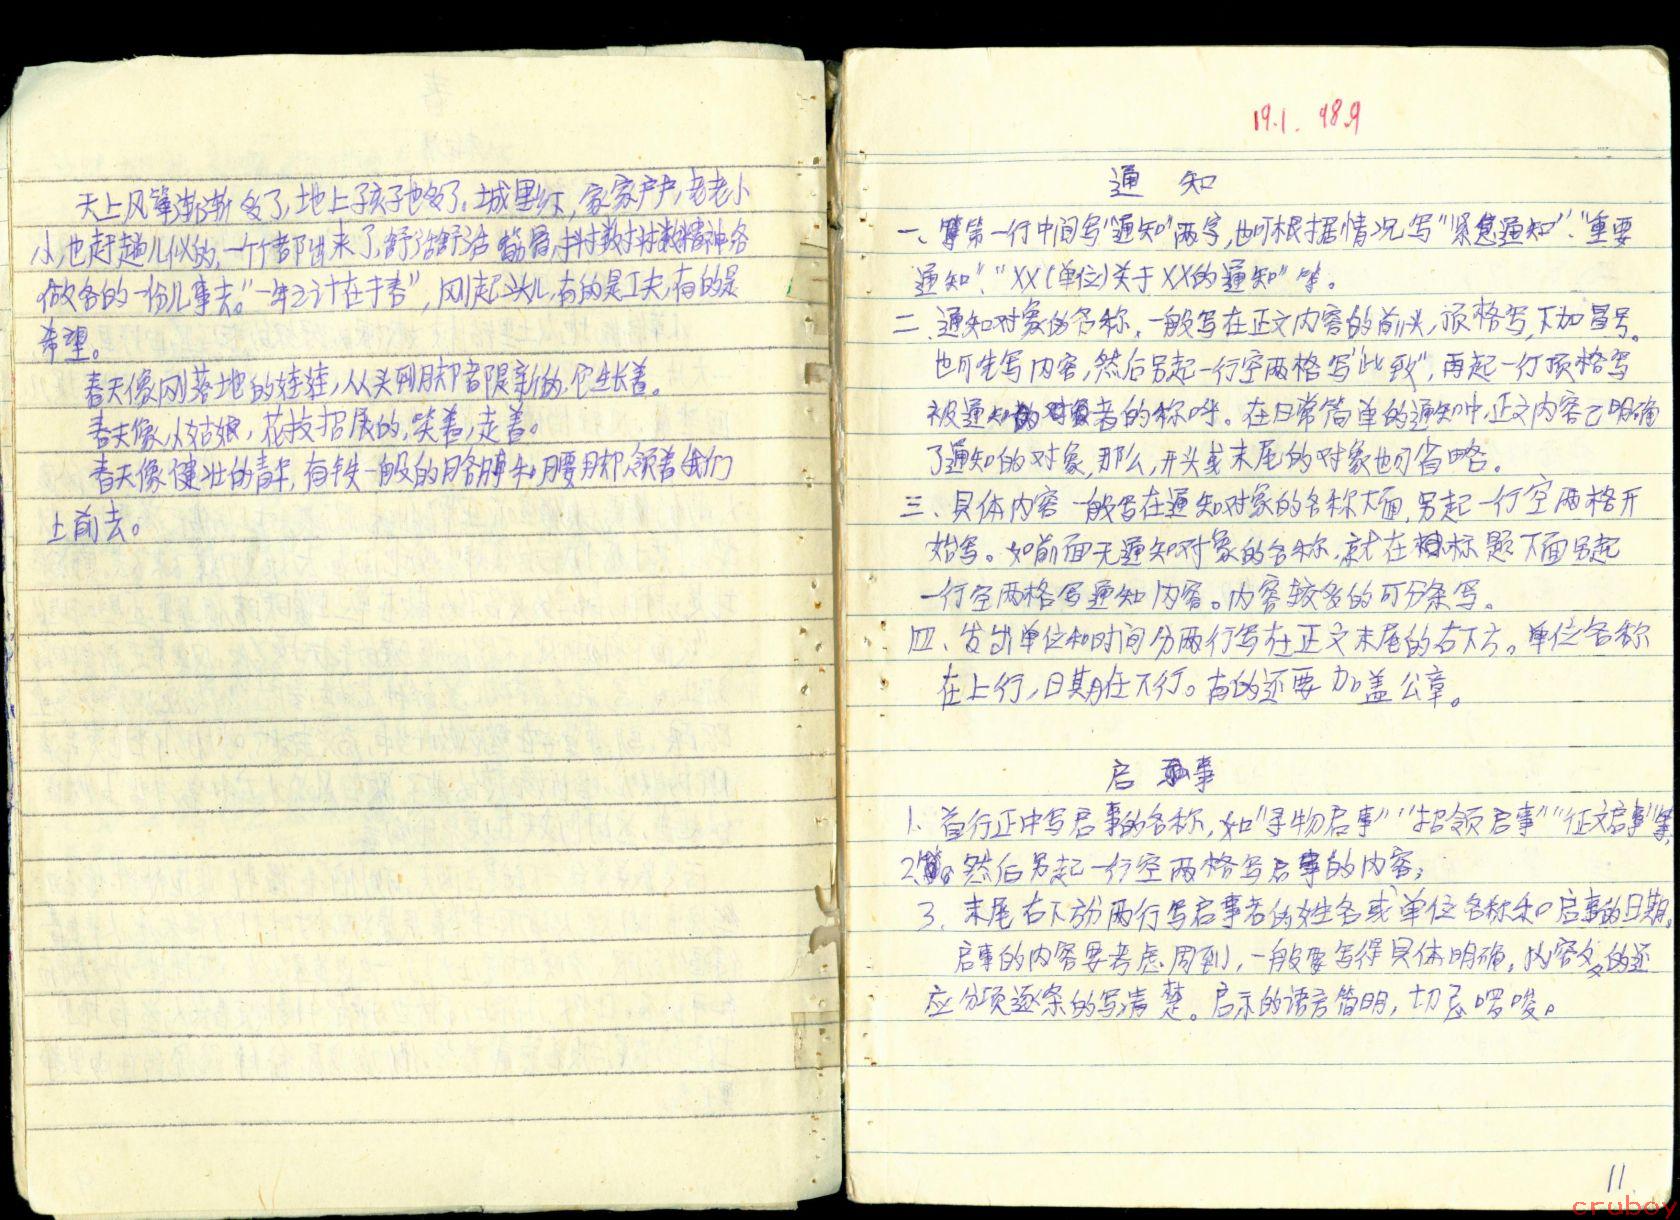 天上风筝渐渐多了,地上孩子也多了。城里乡下,家家户户,老老小
小,也赶趟儿似的,一个个都出来了,舒活舒活筋骨,抖擞抖擞精神各
做各的一份儿事去。"一年之计在于春",刚起头儿,有的是工夫,有的是
希望。
春天像刚落地的娃娃,从头到脚都是新的,它生长着。
春天像小姑娘,花技招展的,笑着,走着。
春天像健壮的青年,有铁一般的胳膊和腰脚,领着我们
上前去。
19.1. 98.9
通 知
一、第一行中间写"通知"两字,也可根据情况写"紧急通知"、"重要
通知"、"XX(单位)关于XX的通知"等。
二、通知对象的名称,一般写在正文内容的前头,顶格写,下加冒号。
也可先写内容,然后另起一行空两格写"此致",再起一行顶格写
被通知者的称呼。在日常简单的通知中,正文内容已明确
了通知的对象,那么,开头或末尾的对象也可省略。
三、具体内容一般写在通知对象的名称下面,另起一行空两格开
始写。如前面无通知对象的名称,就在标题下面另起
一行空两格写通知内容。内容较多的可分条写。
四、发出单位和时间分两行写在正文末尾的右下方。单位名称
在上行,日期在下行。有的还要加盖公章。
启 事
1、首行正中写启事的名称,如"寻物启事""招领启事""征文启事"等,
2、然后另起一行空两格写启事的内容;
3、末尾右下方分两行写启事者的姓名或单位名称和启事的日期。
启事的内容要考虑周到,一般要写得具体明确,内容多的还
应分项逐条的写清楚。启示的语言简明,切忌啰唆。
11
cruboy